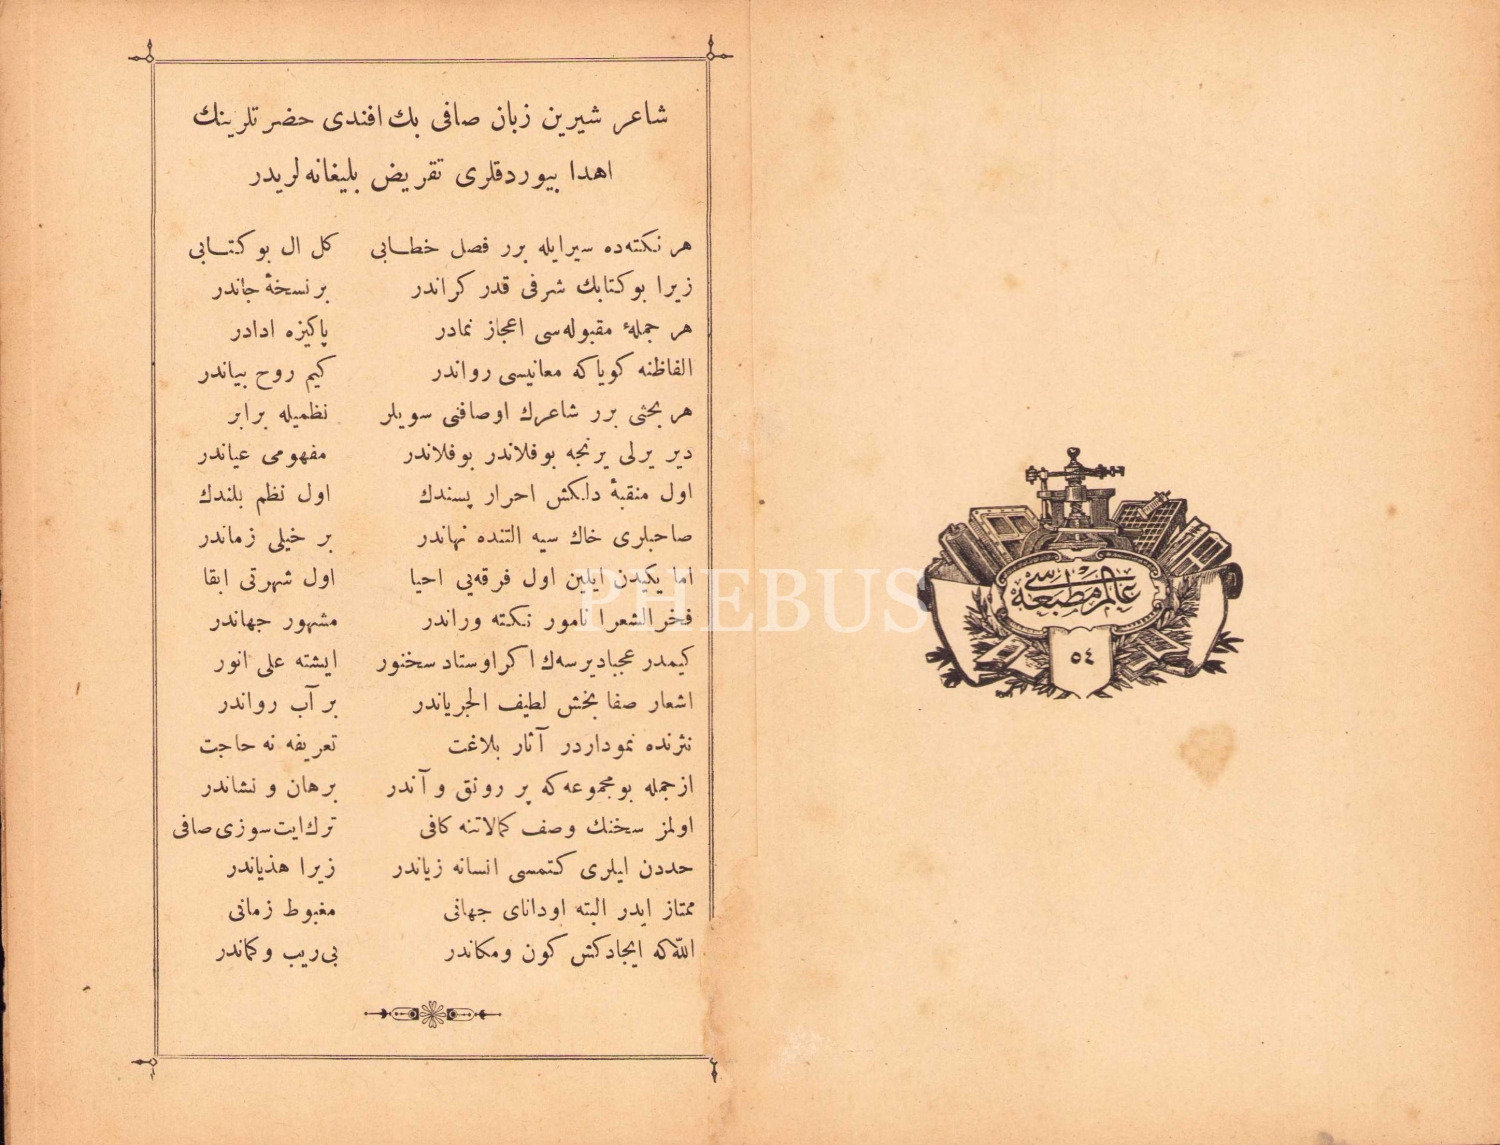 شاعر شیرین زبان صافی بك افندی حضرتلرینك
اهدا بیوردقلری تقریض بلیغانه لریدر
هر نكته‌ده سیرایله برر فصل خطابی كل ال بو كتابی
زیرا بوكتابك شرفی قدر كراندر بر نسخهٔ جاندر
هر جملهٔ مقبوله‌سی اعجاز نمادر پاكیزه ادادر
الفاظنه كویاكه معانیسی رواندر كیم روح بیاندر
هر بحثی برر شاعرك اوصافنی سویلر نظمیله برابر
دیر یرلی یرنجه بوفلاندر بوفلاندر مفهومی عیاندر
اول منقبهٔ دلكش احرار پسندك اول نظم بلندك
صاحبلری خاك سیه التنده نهاندر بر خیلی زماندر
اما یكیدن ایلین اول فرقه‌یی احیا اول شهرتی ابقا
فخر الشعرا نامور نكته وراندر مشهور جهاندر
كیمدر عجبادیرسه‌ك اكر اوستاد سخنور ایشته علی انور
اشعار صفا بخش لطیف الجریاندر بر آب رواندر
نثرنده نموداردر آثار بلاغت تعریفه نه حاجت
ازجمله بو مجموعه‌كه پر رونق و آندر برهان و نشاندر
اولمز سخنك وصف كمالاتنه كافی ترك ایت سوزی صافی
حددن ایلری كتمسی انسانه زیاندر زیرا هذیاندر
ممتاز ایدر البته اودانای جهانی مغبوط زمانی
اللّٰه‌كه ایجادكش كون ومكاندر بی‌ریب وكماندر
عالم مطبعه‌سی
٥٤
PHEBUS